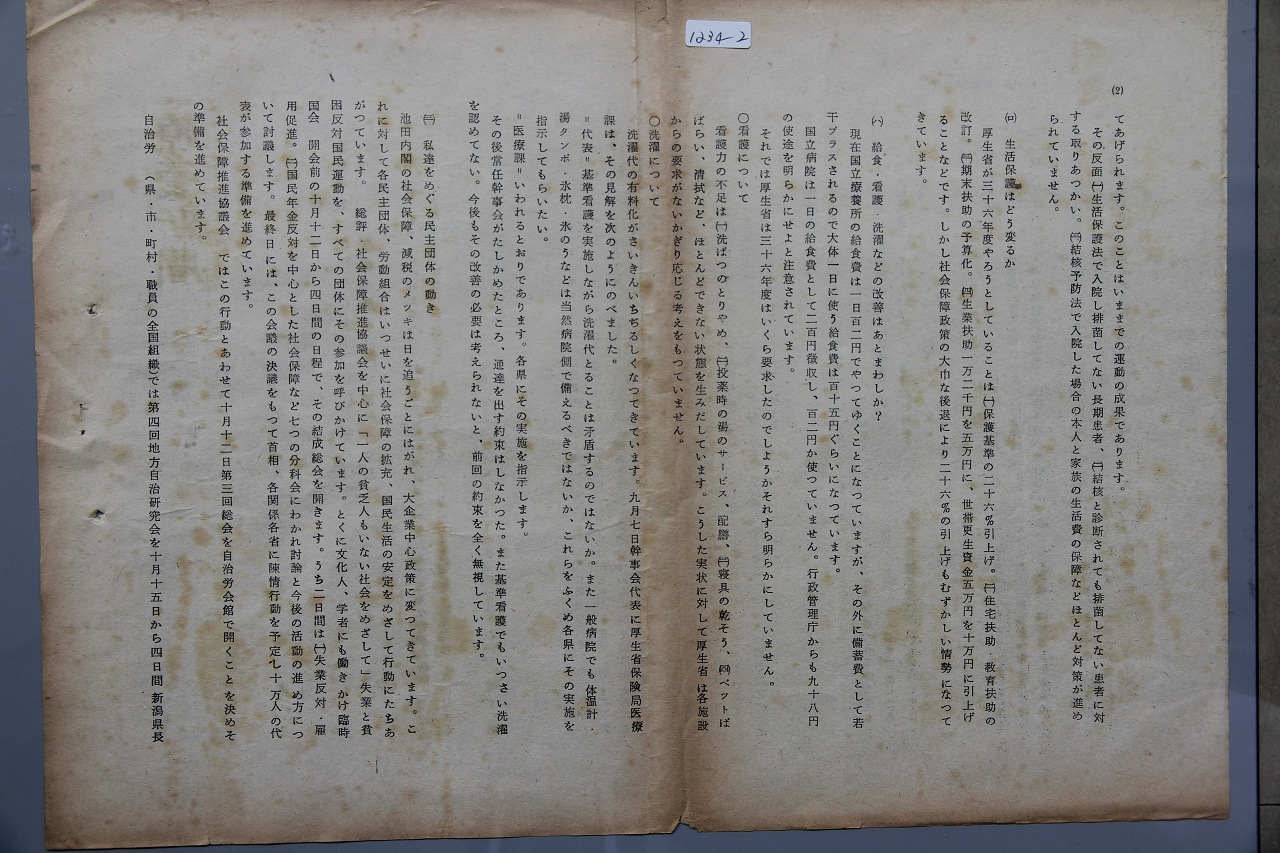 1234-2
(2)
てあげられます。このことはいままでの運動の成果であります。
その反面㈠生活保護法で入院し排菌してない長期患者、㈡結核と診断されても排菌してない患者に対
する取りあつかい。㈢結核予防法で入院した場合の本人と家族の生活費の保障などほとんど対策が進め
られていません。
㈺ 生活保護はどう変るか
厚生省が三十六年度やろうとしていることは㈠保護基準の二十六%引上げ。㈡住宅扶助・教育扶助の
改訂。㈢期末扶助の予算化。㈣生業扶助一万二千円を五万円に、世帯更生資金五万円を十万円に引上げ
ることなどです。しかし社会保障政策の大巾な後退により二十六%の引上げもむずかしい情勢になつて
きています。
(ハ) 給食・看護・洗濯などの改善はあとまわしか?
現在国立療養所の給食費は一日百二円でやつてゆくことになつていますが、その外に備蓄費として若
干プラスされるので大体一日に使う給食費は百十五円ぐらいになつています。
国立病院は一日の給食費として二百円徴収し、百二円か使つていません。行政管理庁からも九十八円
の使途を明らかにせよと注意されています。
それでは厚生省は三十六年度はいくら要求したのでしようかそれすら明らかにしていません。
〇看護について
看護力の不足は㈠洗ぱつのとりやめ、㈡投薬時の湯のサービス、配膳、㈢寝具の乾そう、㈣ベットぱ
ばらい、清拭など、ほとんどできない状態を生みだしています。こうした実状に対して厚生省は各施設
からの要求がないかぎり応じる考えをもつていません。
〇洗濯について
洗濯代の有料化がさいきんいちぢるしくなつてきています。九月七日幹事会代表に厚生省保険局医療
課は、その見解を次のようにのべました。
=代表=基準看護を実施しながら洗濯代とることは矛盾するのではないか。また一般病院でも体温計・
湯タンポ・氷枕・氷のうなどは当然病院側で備えるべきではないか、これらをふくめ各県にその実施を
指示してもらいたい。
=医療課=いわれるとおりであります。各県にその実施を指示します。
その後常任幹事会がたしかめたところ、通達を出す約束はしなかつた。また基準看護でもいつさい洗濯
を認めてない。今後もその改善の必要は考えられないと、前回の約束を全く無視しています。
㈢ 私達をめぐる民主団体の動き
池田内閣の社会保障、減税のメッキは日を追うごとにはがれ、大企業中心政策に変つてきています。こ
れに対して各民主団体、労働組合はいつせいに社会保障の拡充、国民生活の安定をめざして行動にたちあ
がつています。 総評・社会保障推進協議会を中心に「一人の貧乏人もいない社会をめざして」失業と貧
困反対国民運動を、すべての団体にその参加を呼びかけています。とくに文化人、学者にも働きかけ臨時
国会 開会前の十月十二日から四日間の日程で、その結成総会を開きます。うち二日間は㈠失業反対・雇
用促進。㈡国民年金反対を中心とした社会保障など七つの分科会にわかれ討論と今後の活動の進め方につ
いて討議します。最終日には、この会議の決議をもつて首相、各関係各省に陳情行動を予定し十万人の代
表が参加する準備を進めています。
社会保障推進協議会 ではこの行動とあわせて十月十二日第三回総会を自治労会館で開くことを決めそ
の準備を進めています。
自治労 (県・市・町村・職員の全国組織では第四回地方自治研究会を十月十五日から四日間 新潟県長